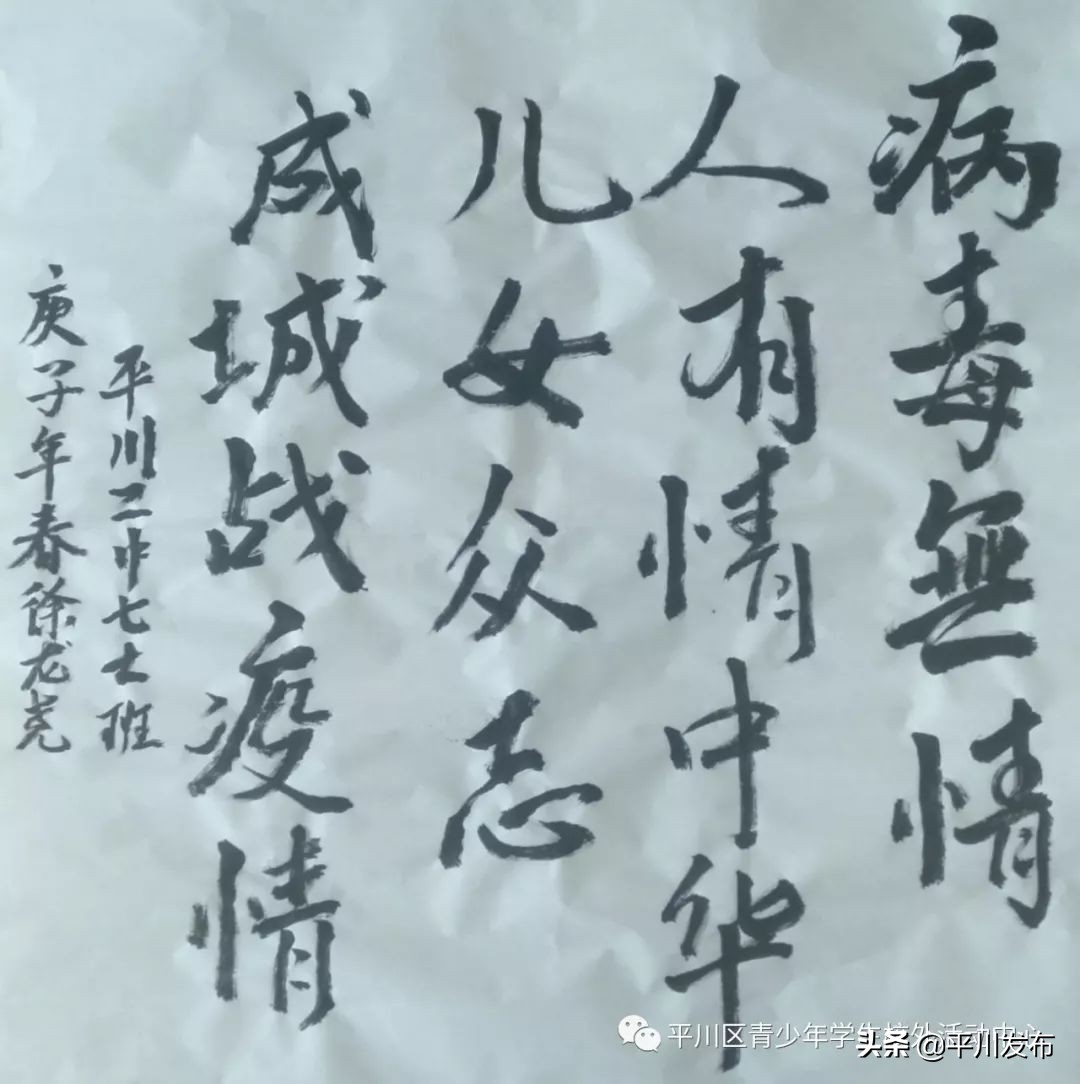 病毒無情
人有情中华
儿女众志
成城战疫情
平川二中七士班
庚子年春徐龙尧
平川区青少年学生校外活动中心
头条 @平川发布